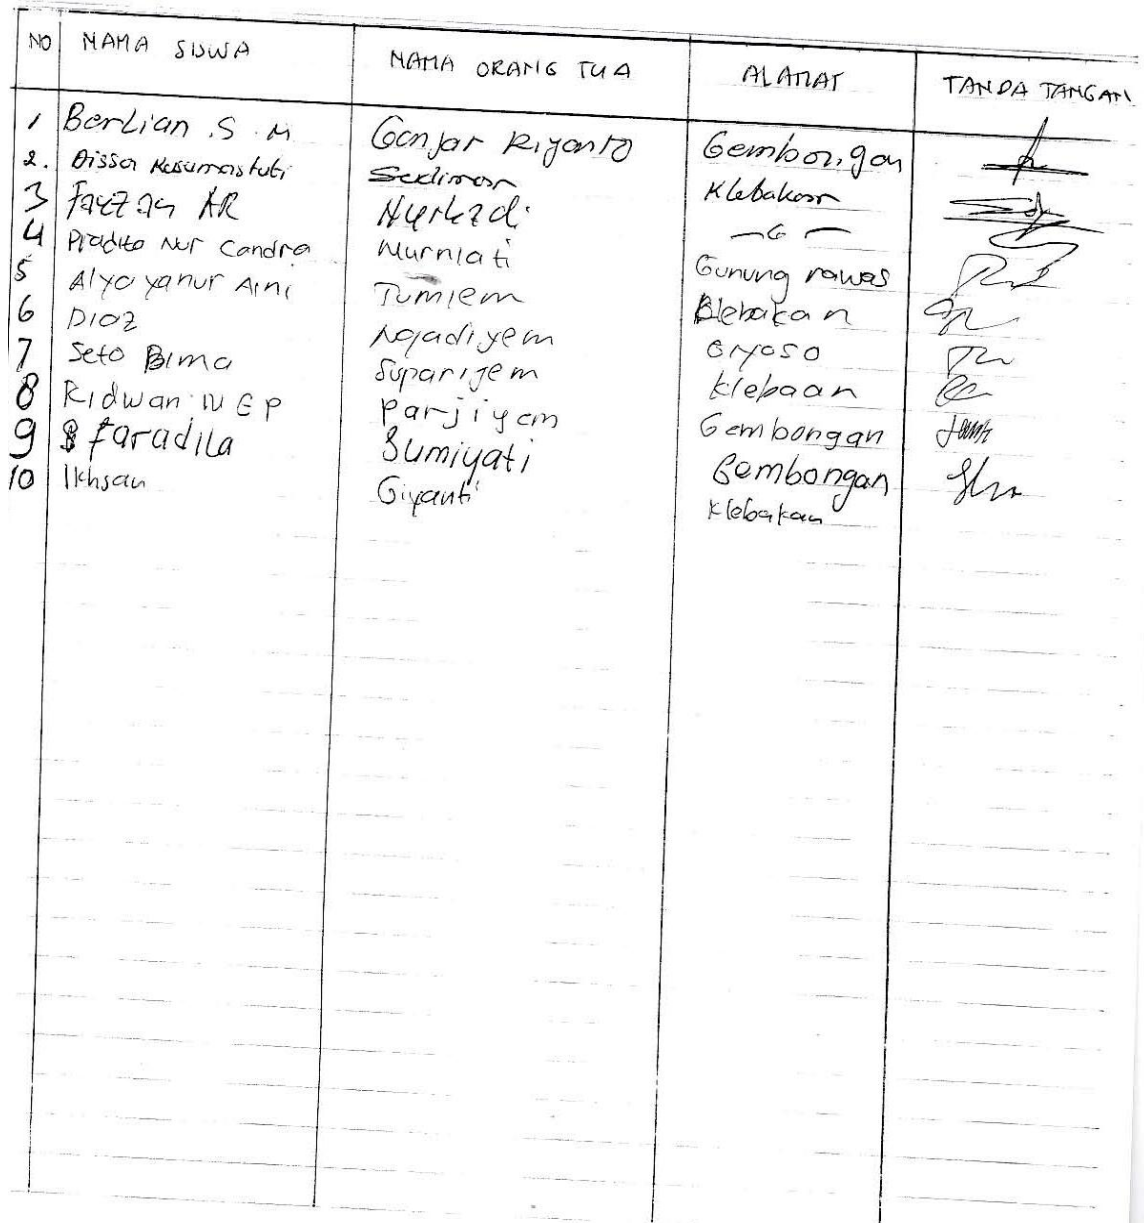 NO NAMA SISWA NAMA ORANG TUA ALAMAT TANDA TANGAN
1 Berlian .S .M Ganjar Riyanto Gembongan
2. Dissa Kusumastuti Sediman Klebakan
3 AR Nurhadi
4 Pradito Nur Candra Murniati Gunung rawas
5 Alya yanur Aini Tumiem Blebakan
6 Dioz Ngadiyem
7 Seto Bima Suparijem Klebaan
8 Ridwan N E P Parjiyem Gembongan
9 faradila Sumiyati Gembongan
10 Ikhsan Giyanti Klebakan